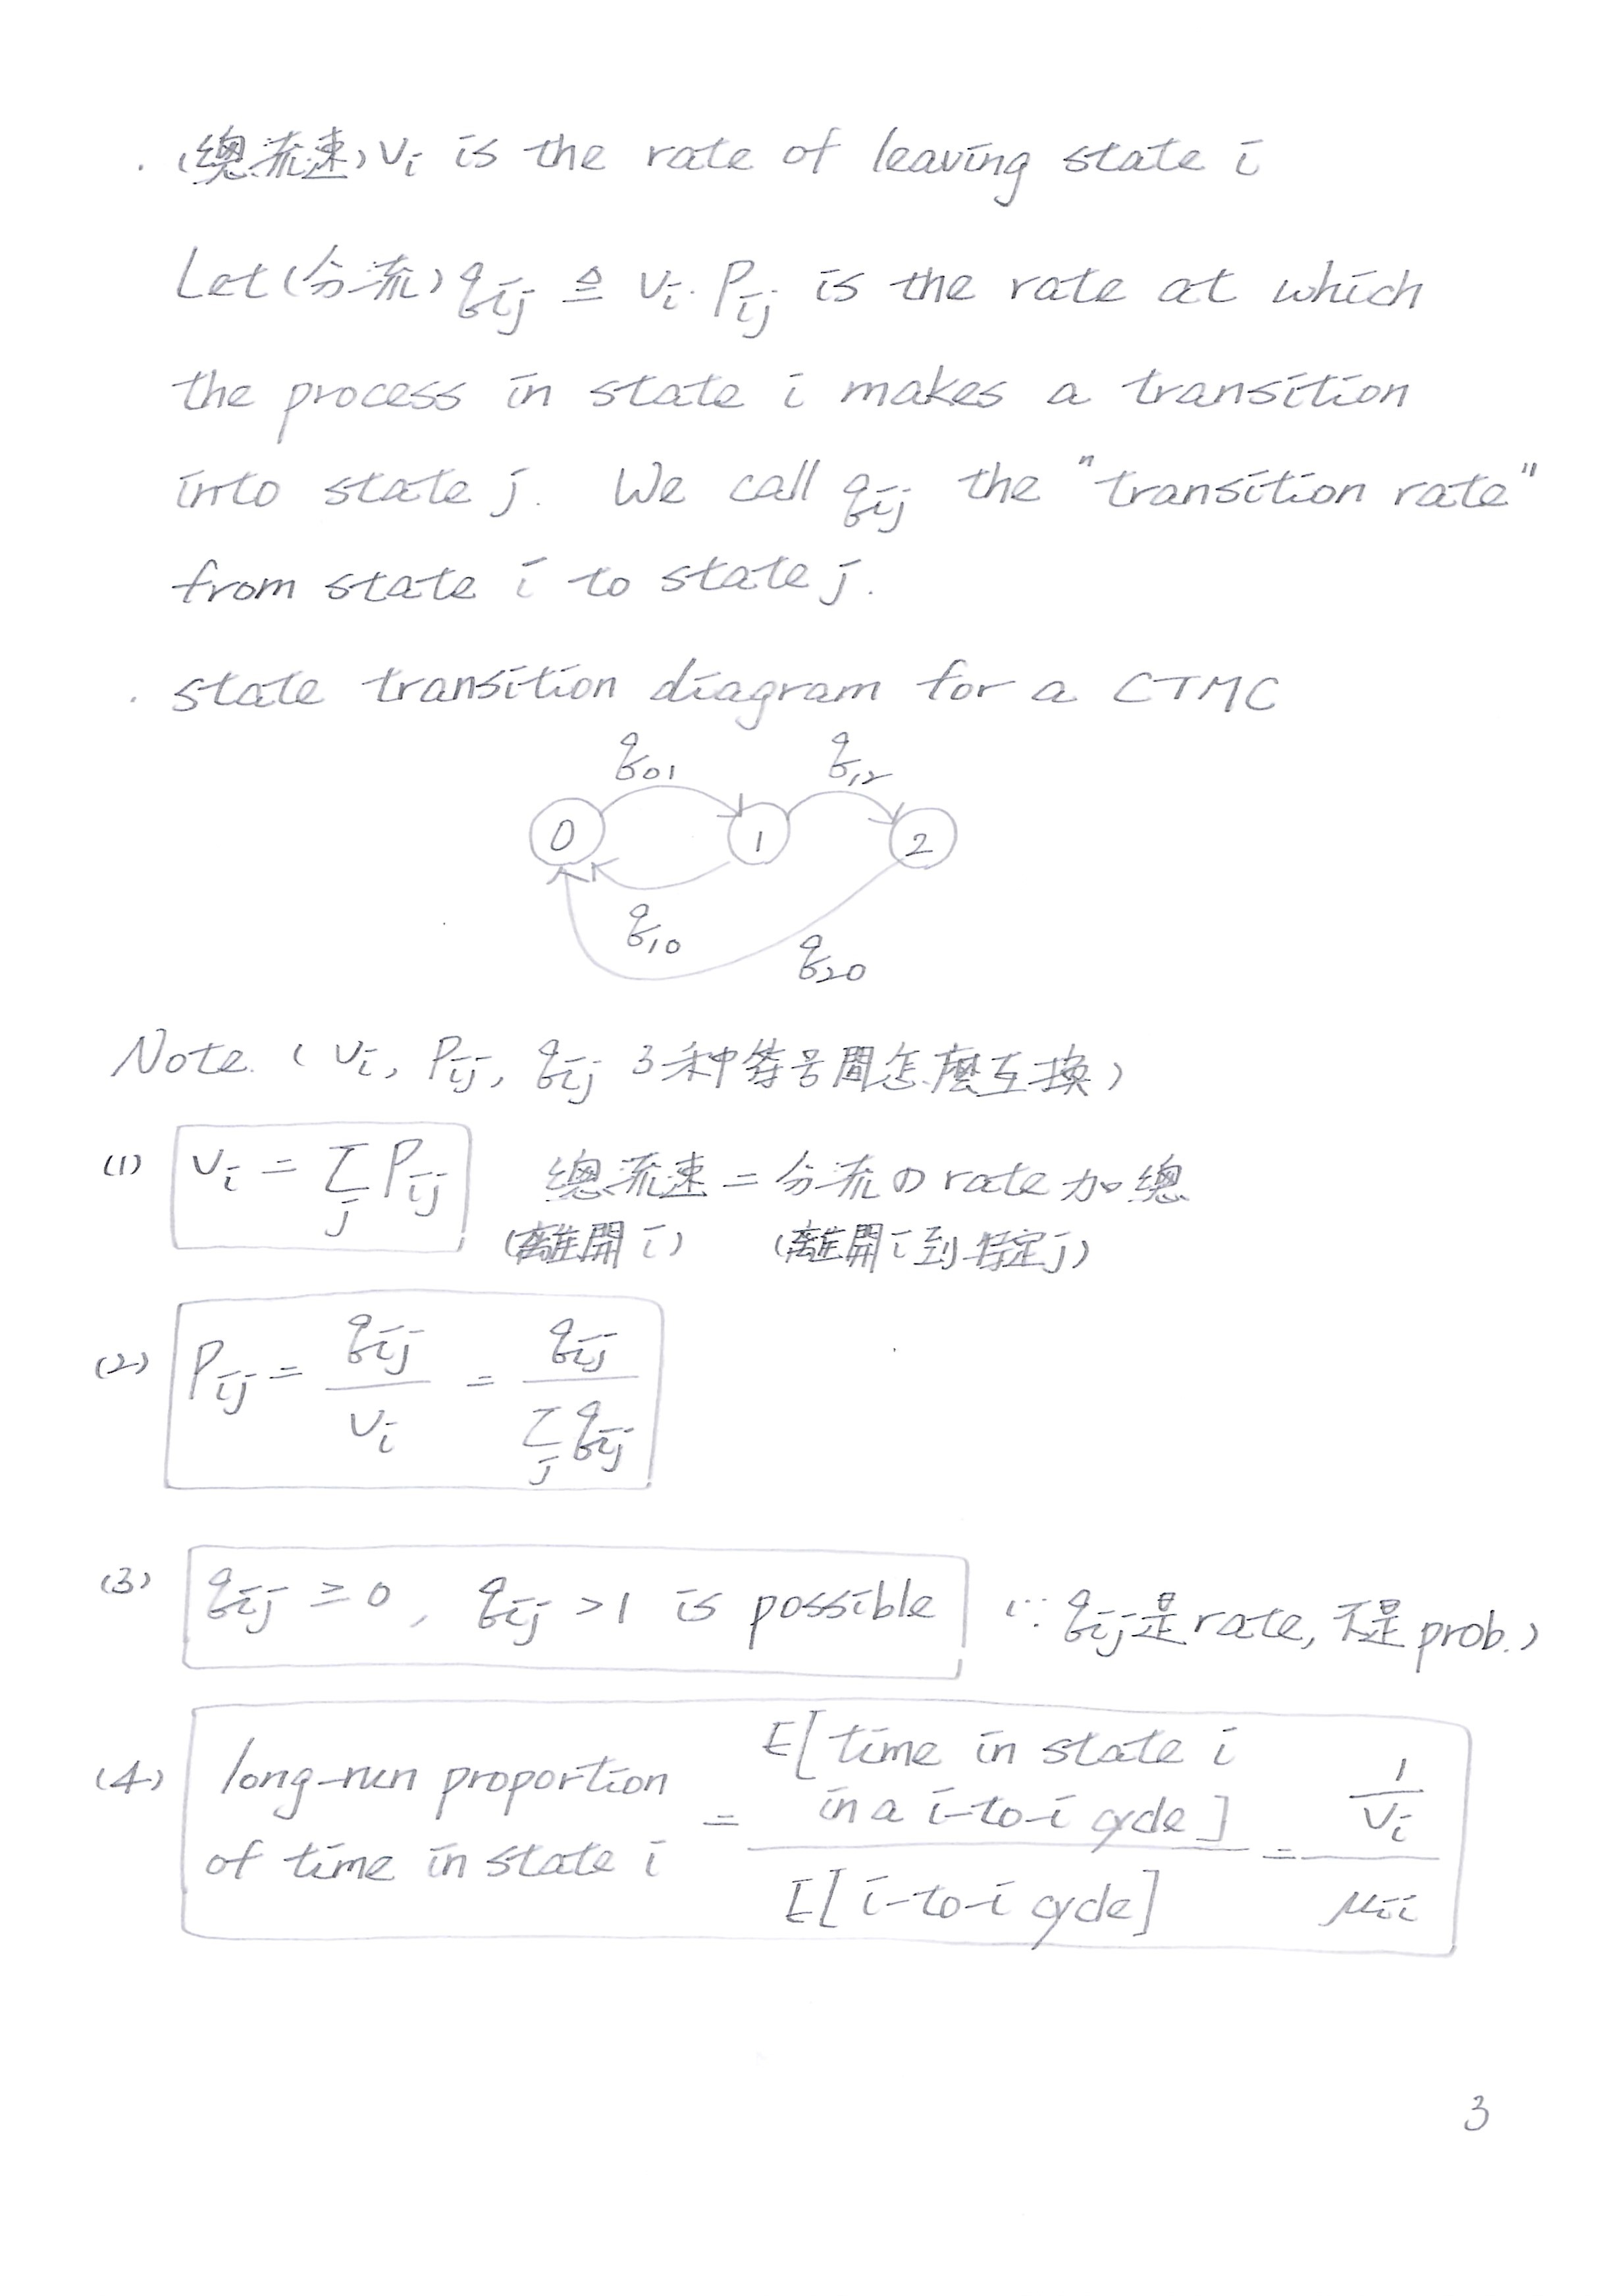 . (總流速) νi is the rate of leaving state i
Let (分流) qij ≜ νi · Pij is the rate at which
the process in state i makes a transition
into state j. We call qij the "transition rate"
from state i to state j.
. state transition diagram for a CTMC
q01 q12
0 1 2
q10
q20
Note. (νi, Pij, qij 3种等号間怎麼互換)
(1) νi = Σj Pij 總流速 = 分流の rate 加總
(離開 i) (離開 i 到特定 j)
(2) Pij = qij / νi = qij / Σj qij
(3) qij ≥ 0, qij > 1 is possible (∵ qij 是 rate, 不是 prob.)
(4) long-run proportion of time in state i = E[time in state i in a i-to-i cycle] / E[i-to-i cycle] = (1/νi) / μii
3